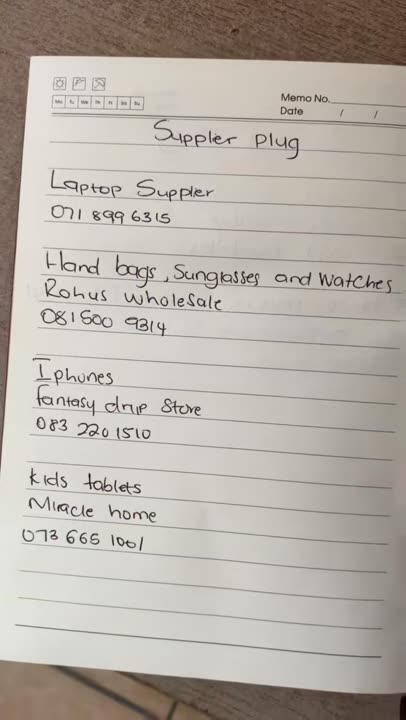 Mo Tu We Th Fr Sa Su
Memo No.
Date / /
Suppler plug
Laptop Suppler
071 899 6315
Hand bags, Sunglasses and Watches
Rohus wholesale
081 500 9314
Iphones
fantasy drip Store
083 220 1510
kids tablets
Miracle home
073 665 1001